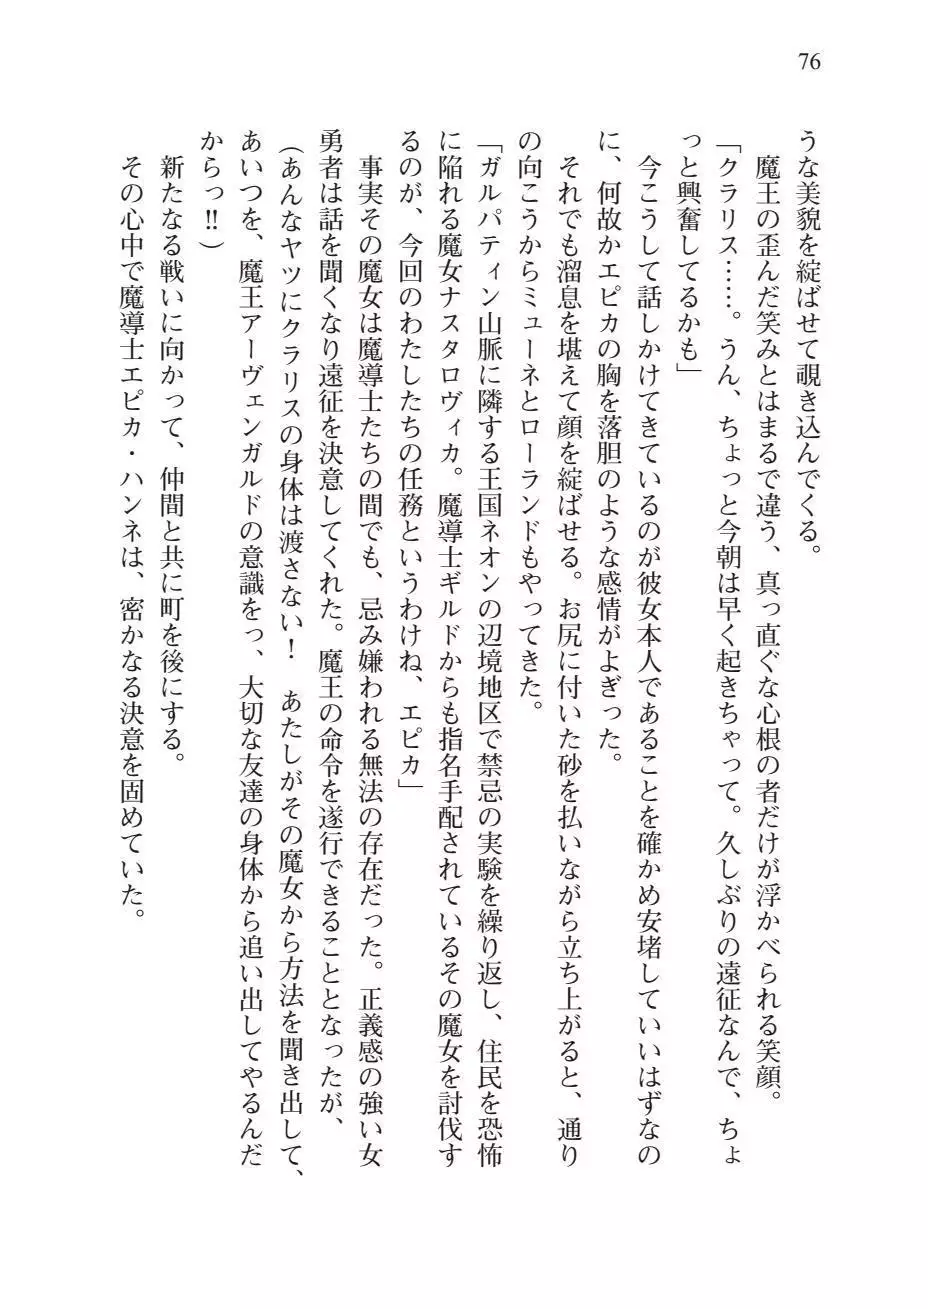 76
うな美貌を綻ばせて覗き込んでくる。
魔王の歪んだ笑みとはまるで違う、真っ直ぐな心根の者だけが浮かべられる笑顔。
「クラリス……。うん、ちょっと今朝は早く起きちゃって。久しぶりの遠征なんで、ちょ
っと興奮してるかも」
今こうして話しかけてきているのが彼女本人であることを確かめ安堵していいはずなの
に、何故かエピカの胸を落胆のような感情がよぎった。
それでも溜息を堪えて顔を綻ばせる。お尻に付いた砂を払いながら立ち上がると、通り
の向こうからミューネとローランドもやってきた。
「ガルパティン山脈に隣する王国ネオンの辺境地区で禁忌の実験を繰り返し、住民を恐怖
に陥れる魔女ナスタロヴィカ。魔導士ギルドからも指名手配されているその魔女を討伐す
るのが、今回のわたしたちの任務というわけね、エピカ」
事実その魔女は魔導士たちの間でも、忌み嫌われる無法の存在だった。正義感の強い女
勇者は話を聞くなり遠征を決意してくれた。魔王の命令を遂行できることとなったが、
（あんなヤツにクラリスの身体は渡さない！　あたしがその魔女から方法を聞き出して、
あいつを、魔王アーヴェンガルドの意識をっ、大切な友達の身体から追い出してやるんだ
からっ!!）
新たなる戦いに向かって、仲間と共に町を後にする。
その心中で魔導士エピカ・ハンネは、密かなる決意を固めていた。